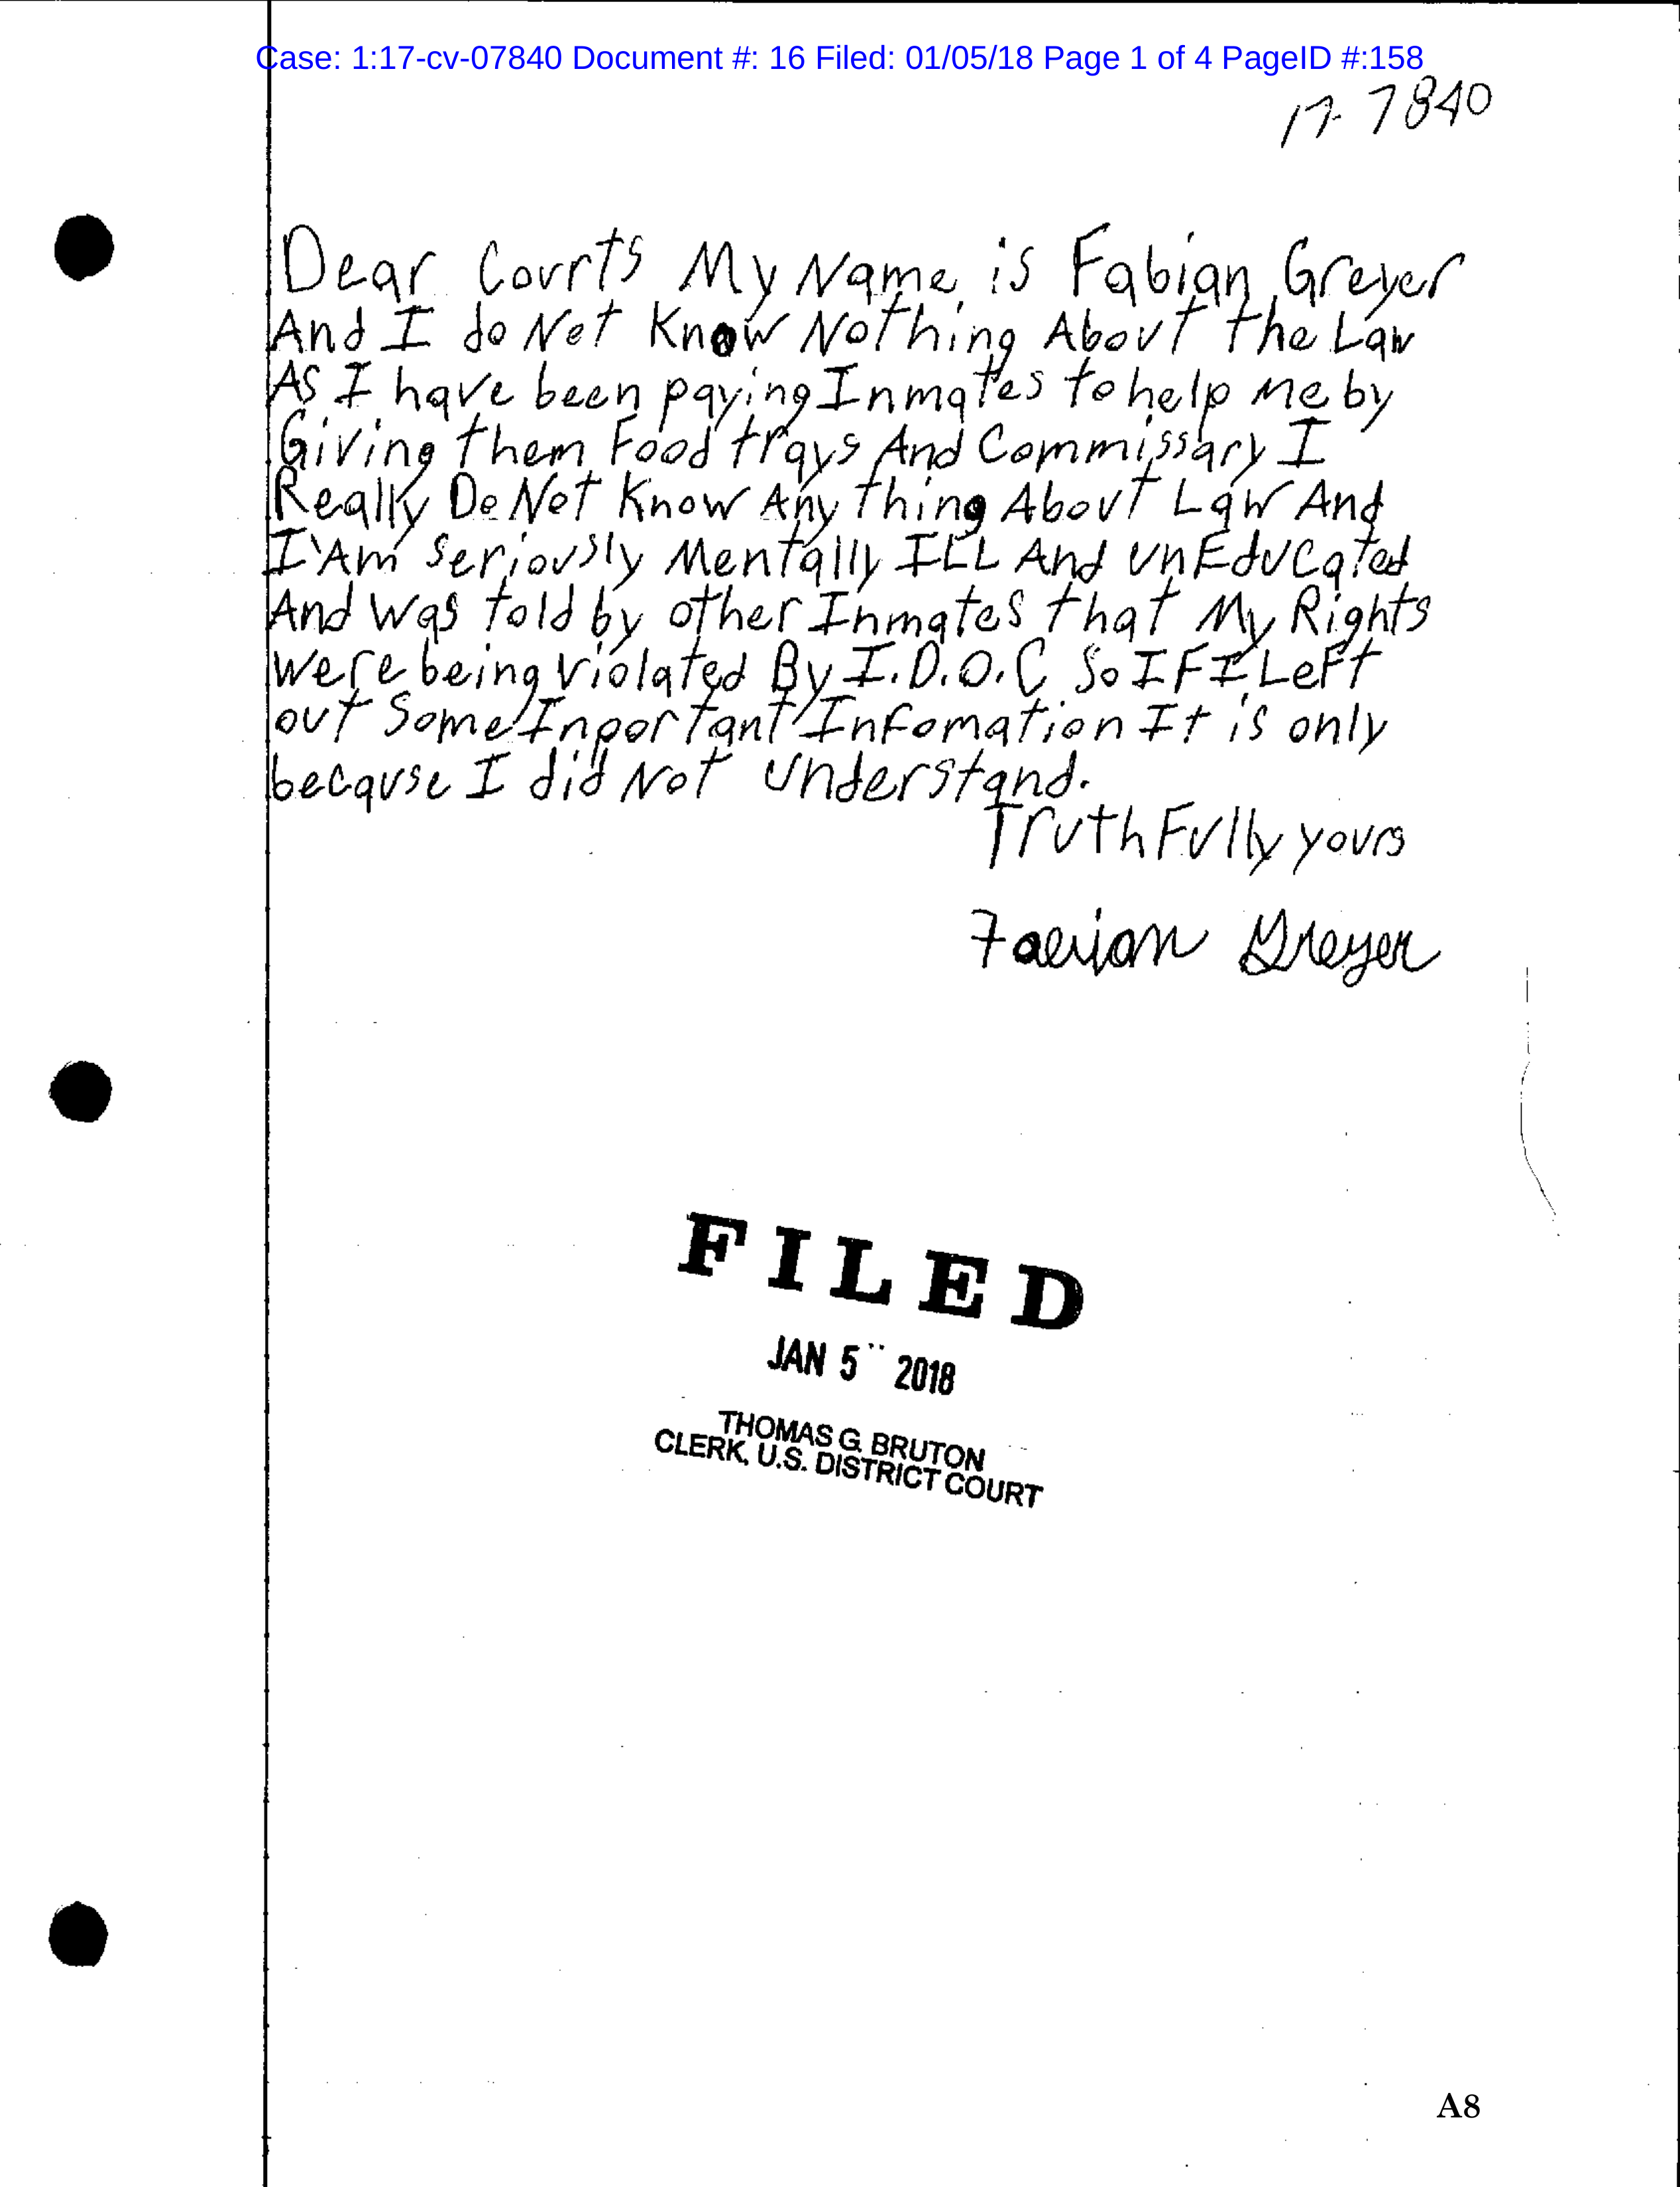 Case: 1:17-cv-07840 Document #: 16 Filed: 01/05/18 Page 1 of 4 PageID #:158
17-7840
Dear Courts My Name is Fabian Greyer
And I do Not Know Nothing About the Law
As I have been paying Inmates to help me by
Giving them Food trays And Commissary I
Really Do Not Know Any thing About Law And
I'Am Seriously Mentally ILL And UnEducated
And was told by other Inmates that My Rights
were being violated By I.D.O.C So IF I LeFt
out Some Inportant Infomation It is only
because I did Not Understand.
TruthFully yours
Fabian Greyer
FILED
JAN 5 2018
THOMAS G. BRUTON
CLERK, U.S. DISTRICT COURT
A8